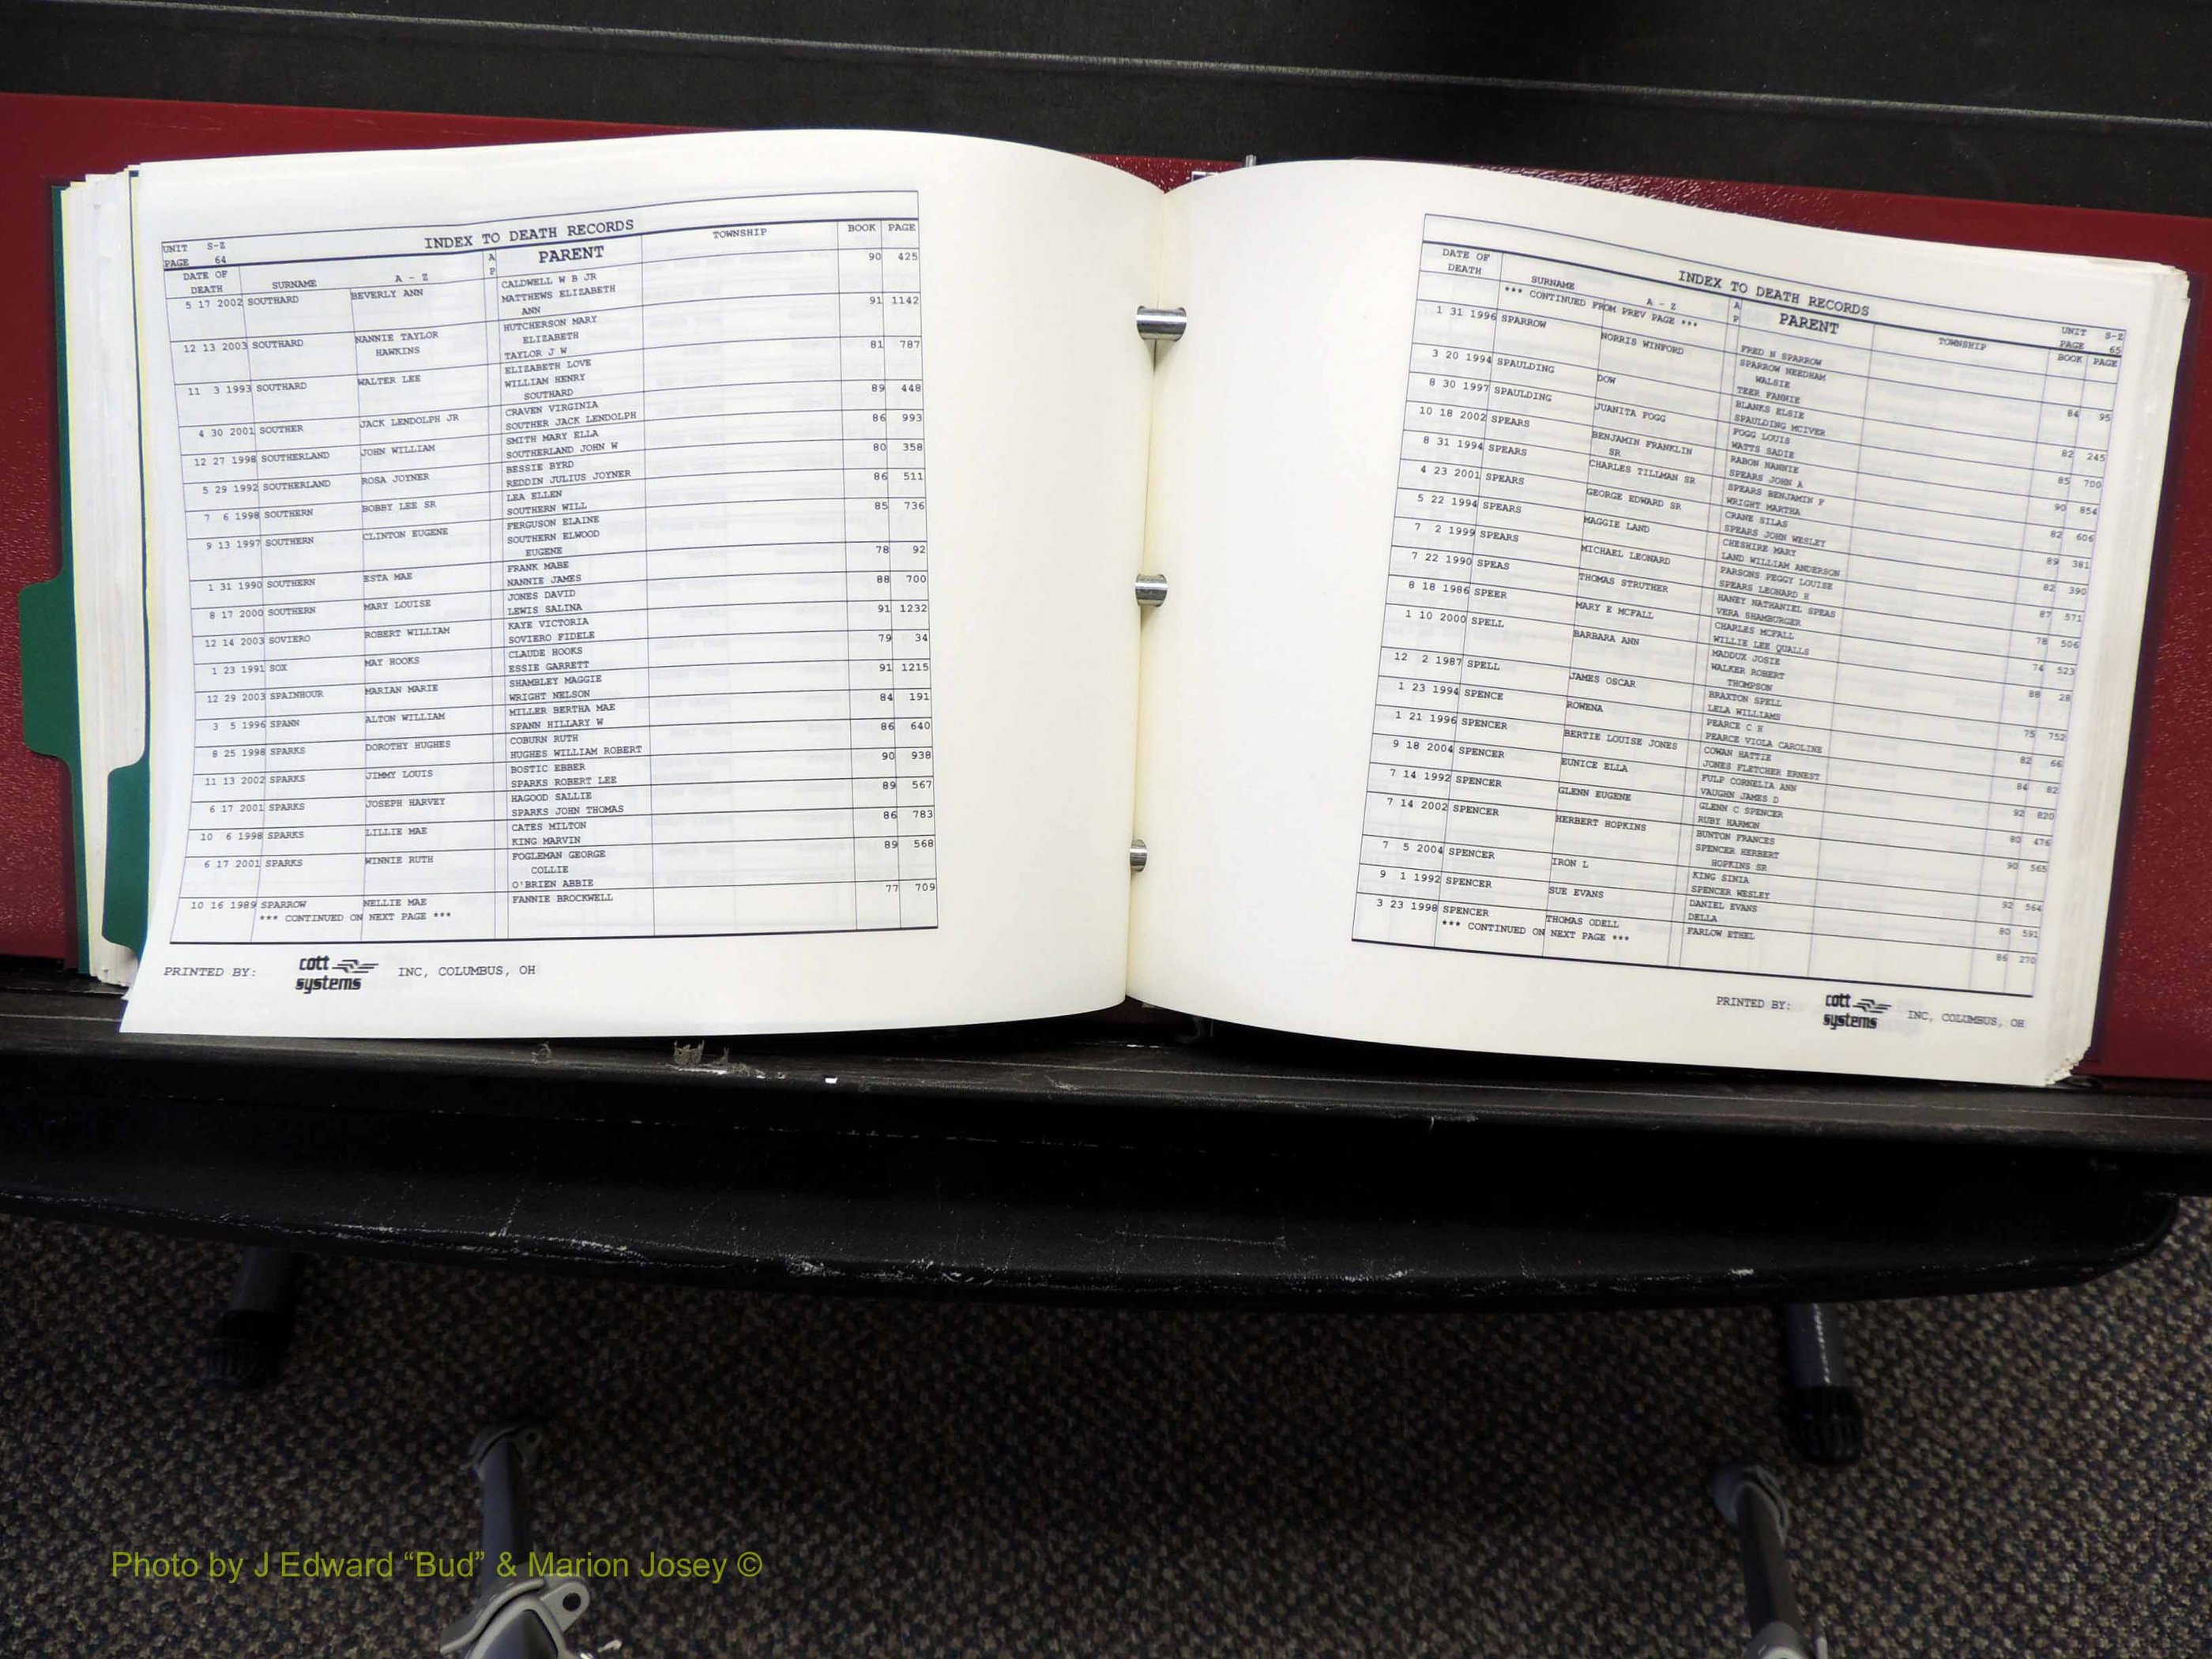 UNIT S-Z
PAGE 64
INDEX TO DEATH RECORDS
DATE OF DEATH SURNAME A - Z A P PARENT TOWNSHIP BOOK PAGE
5 17 2002 SOUTHARD BEVERLY ANN CALDWELL W B JR 90 425
MATTHEWS ELIZABETH
ANN
12 13 2003 SOUTHARD NANNIE TAYLOR HUTCHERSON MARY 91 1142
HAWKINS ELIZABETH
TAYLOR J W
11 3 1993 SOUTHARD WALTER LEE ELIZABETH LOVE 81 787
WILLIAM HENRY
SOUTHARD
4 30 2001 SOUTHER JACK LENDOLPH JR CRAVEN VIRGINIA 89 448
SOUTHER JACK LENDOLPH
12 27 1998 SOUTHERLAND JOHN WILLIAM SMITH MARY ELLA 86 993
SOUTHERLAND JOHN W
5 29 1992 SOUTHERLAND ROSA JOYNER BESSIE BYRD 80 358
REDDIN JULIUS JOYNER
7 6 1998 SOUTHERN BOBBY LEE SR LEA ELLEN 86 511
SOUTHERN WILL
9 13 1997 SOUTHERN CLINTON EUGENE FERGUSON ELAINE 85 736
SOUTHERN ELWOOD
EUGENE
1 31 1990 SOUTHERN ESTA MAE FRANK MABE 78 92
NANNIE JAMES
8 17 2000 SOUTHERN MARY LOUISE JONES DAVID 88 700
LEWIS SALINA
12 14 2003 SOVIERO ROBERT WILLIAM KAYE VICTORIA 91 1232
SOVIERO FIDELE
1 23 1991 SOX MAY HOOKS CLAUDE HOOKS 79 34
ESSIE GARRETT
12 29 2003 SPAINHOUR MARIAN MARIE SHAMBLEY MAGGIE 91 1215
WRIGHT NELSON
3 5 1996 SPANN ALTON WILLIAM MILLER BERTHA MAE 84 191
SPANN HILLARY W
8 25 1998 SPARKS DOROTHY HUGHES COBURN RUTH 86 640
HUGHES WILLIAM ROBERT
11 13 2002 SPARKS JIMMY LOUIS BOSTIC EBBER 90 938
SPARKS ROBERT LEE
6 17 2001 SPARKS JOSEPH HARVEY HAGOOD SALLIE 89 567
SPARKS JOHN THOMAS
10 6 1998 SPARKS LILLIE MAE CATES MILTON 86 783
KING MARVIN
6 17 2001 SPARKS WINNIE RUTH FOGLEMAN GEORGE 89 568
COLLIE
O'BRIEN ABBIE
10 16 1989 SPARROW NELLIE MAE FANNIE BROCKWELL 77 709
*** CONTINUED ON NEXT PAGE ***
PRINTED BY: cott systems INC, COLUMBUS, OH
INDEX TO DEATH RECORDS
UNIT S-Z
PAGE 65
DATE OF DEATH SURNAME A - Z A P PARENT TOWNSHIP BOOK PAGE
*** CONTINUED FROM PREV PAGE ***
FRED N SPARROW
1 31 1996 SPARROW NORRIS WINFORD SPARROW NEEDHAM 84 95
WALSIE
TEER FANNIE
3 20 1994 SPAULDING DOW BLANKS ELSIE 82 245
SPAULDING MCIVER
8 30 1997 SPAULDING JUANITA FOGG FOGG LOUIS 85 700
WATTS SADIE
10 18 2002 SPEARS BENJAMIN FRANKLIN RABON NANNIE 90 854
SR SPEARS JOHN A
8 31 1994 SPEARS CHARLES TILLMAN SR SPEARS BENJAMIN F 82 606
WRIGHT MARTHA
4 23 2001 SPEARS GEORGE EDWARD SR CRANE SILAS 89 381
SPEARS JOHN WESLEY
5 22 1994 SPEARS MAGGIE LAND CHESHIRE MARY 82 390
LAND WILLIAM ANDERSON
7 2 1999 SPEARS MICHAEL LEONARD PARSONS PEGGY LOUISE 87 571
SPEARS LEONARD H
7 22 1990 SPEAS THOMAS STRUTHER HANEY NATHANIEL SPEAS 78 506
VERA SHAMBURGER
8 18 1986 SPEER MARY E MCFALL CHARLES MCFALL 74 523
WILLIE LEE QUALLS
1 10 2000 SPELL BARBARA ANN MADDUX JOSIE 88 28
WALKER ROBERT
THOMPSON
12 2 1987 SPELL JAMES OSCAR BRAXTON SPELL 75 752
LELA WILLIAMS
1 23 1994 SPENCE ROWENA PEARCE C H 82 66
PEARCE VIOLA CAROLINE
1 21 1996 SPENCER BERTIE LOUISE JONES COWAN HATTIE 84 82
JONES FLETCHER ERNEST
9 18 2004 SPENCER EUNICE ELLA FULP CORNELIA ANN 92 820
VAUGHN JAMES D
7 14 1992 SPENCER GLENN EUGENE GLENN C SPENCER 80 476
RUBY HARMON
7 14 2002 SPENCER HERBERT HOPKINS BUNTON FRANCES 90 565
SPENCER HERBERT
HOPKINS SR
7 5 2004 SPENCER IRON L KING SINIA 92 564
SPENCER WESLEY
9 1 1992 SPENCER SUE EVANS DANIEL EVANS 80 591
DELLA
3 23 1998 SPENCER THOMAS ODELL FARLOW ETHEL 86 270
*** CONTINUED ON NEXT PAGE ***
PRINTED BY: cott systems INC, COLUMBUS, OH
Photo by J Edward “Bud” & Marion Josey ©